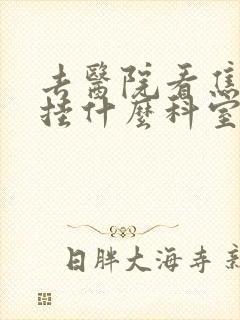 去醫院看焦
掛什麼科室
日胖大海寺新